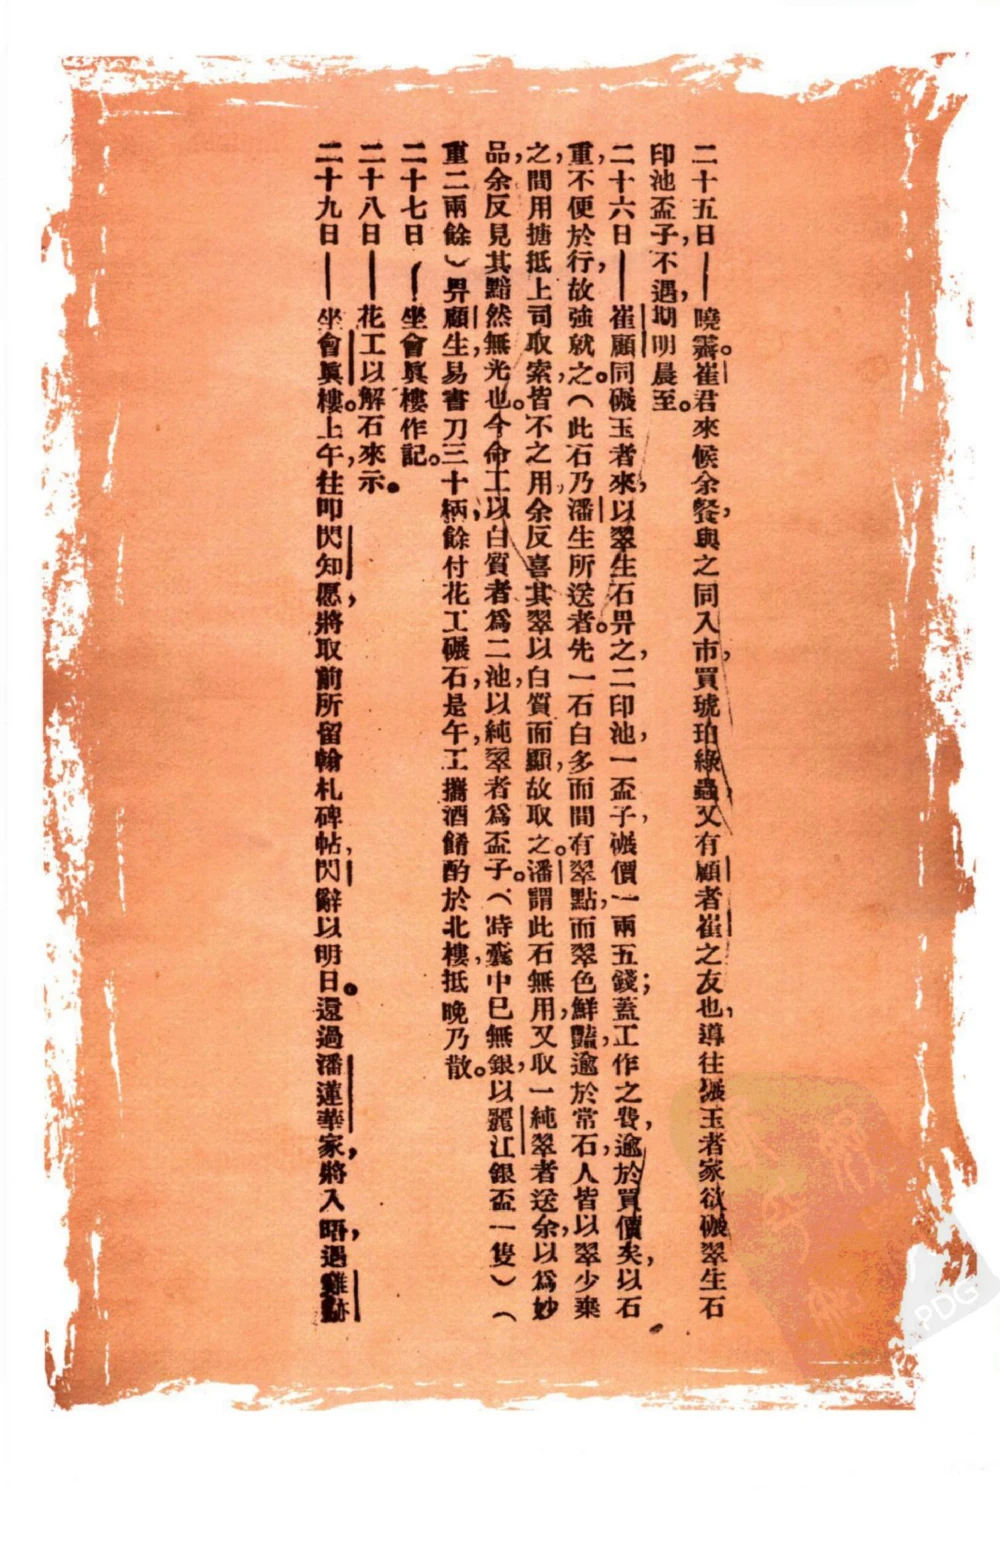 二十五日——曉霽。崔君來候余餐，與之同入市，買琥珀綠蟲。又有顧者，崔之友也，導往碾玉者家，欲碾翠生石
印池盃子，不遇，期明晨至。
二十六日——崔、顧同碾玉者來，以翠生石畀之。二印池，一盃子，碾價一兩五錢；蓋工作之費，逾於買價矣，以石
重，不便於行，故強就之。（此石乃潘生所送者。先一石白多而間有翠點，而翠色鮮豔，逾於常石，人皆以翠少棄
之，間用搪抵上司取索，皆不之用，余反喜其翠以白質而顯，故取之。潘謂此石無用，又取一純翠者送余，以爲妙
品，余反見其黯然無光也。今命工以白質者爲二池，以純翠者爲盃子。（時囊中已無銀，以麗江銀盃一隻）（
重二兩餘）畀顧生，易書刀三十柄，餘付花工碾石。是午，工攜酒餚酌於北樓，抵晚乃散。
二十七日——坐會眞樓作記。
二十八日——花工以解石來示。
二十九日——坐會眞樓。上午，往叩閃知愿，將取前所留翰札碑帖，閃辭以明日。還過潘蓮華家，將入晤，遇雞跡
PDG